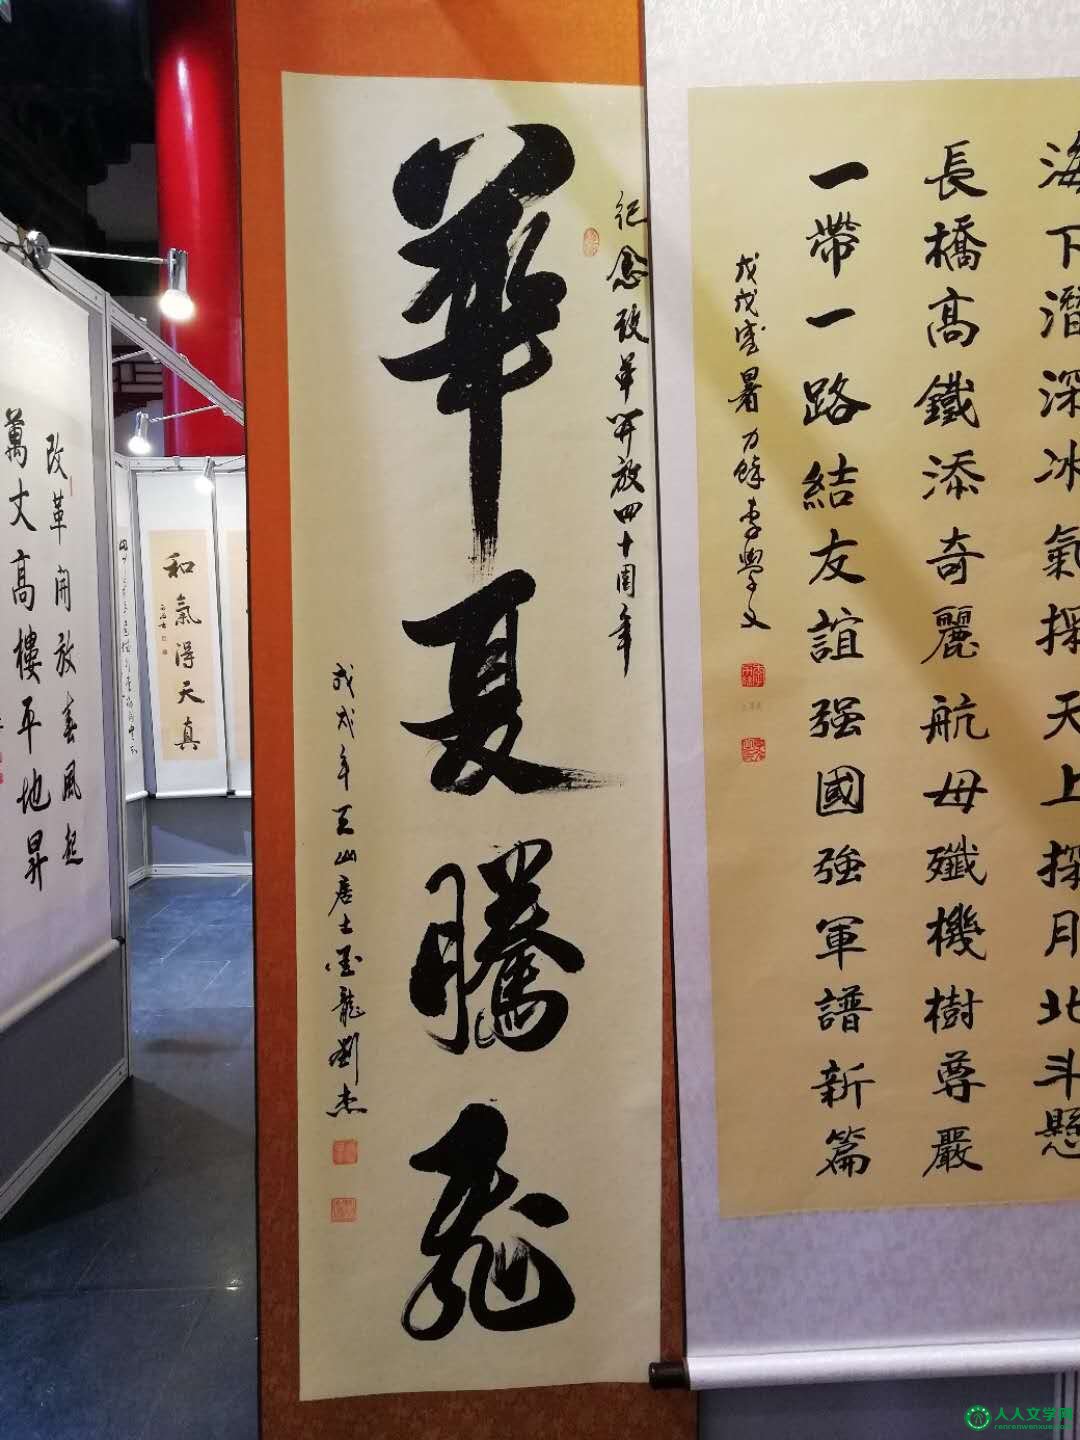 華夏騰飛
紀念改革開放四十周年
戊戌年王山居士墨龍劉杰
海下潛深冰氣採天上探月北斗懸
長橋高鐵添奇麗航母殲機樹尊嚴
一帶一路結友誼强國強軍譜新篇
戊戌盛暑力鋒李學文
改革開放春風起
萬丈高樓平地昇
和氣得天真
人人文学网
renrenwenxue.com